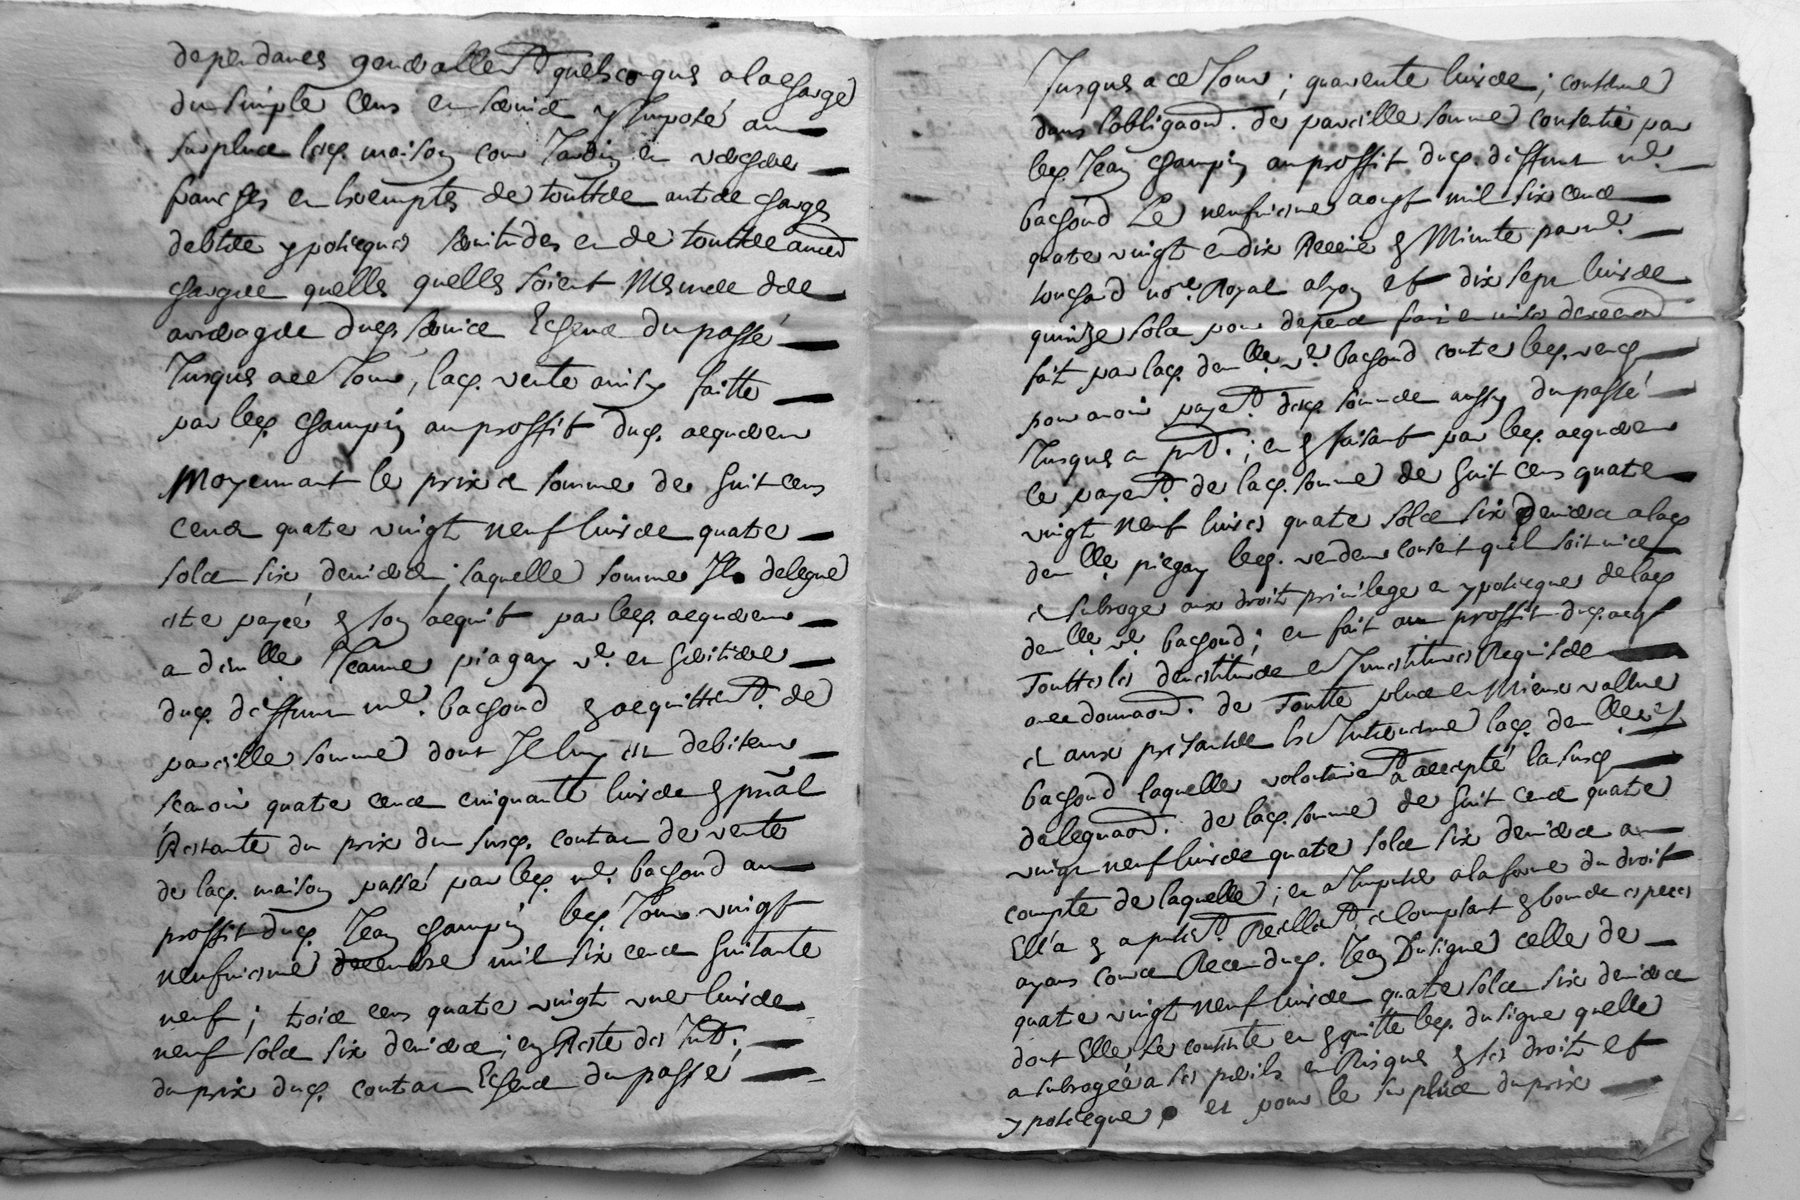 dependances generallemt quelsconques a la charge
du simple cens en service y Imposé au
surplus lad. maison cour Jardin en
franches en exemptes de touttes autres charges
debtes ypoteques servitudes en de touttes autres
charges quelles quelles soient Mesmes des
arrerages dud. service Eschus du passé
Jusques a ce Jour, lad. vente ainsy faitte
par led. champin au proffit dud. acquereur
Moyennant le prix et somme de huit cens
cens quatre vingt neuf livres quatre
sols six deniers; laquelle somme Il a delegué
estre payée & son acquit par led. acquereur
a demlle Jeanne piagay ve. en heritiere
dud. deffunt mr. bachoud & acquittemt. de
pareille somme dont Il luy est debiteur
scavoir quatre cens cinquante livres & pñal
Restante du prix du susd. contrat de vente
de lad. maison passé par led. mr. bachoud au
proffit dud. Jean champin led. Jour vingt
neufviesme decembre mil six cens huitante
neuf; trois cens quatre vingt une livres
neuf sols six deniers; en Reste des Intt.
du prix dud. contrat Eschus du passé
Jusques a ce Jour; quarente livres; contenue
dans l'obligaon. de pareille somme consentie par
led. Jean champin au proffit dud. deffunt mr.
bachoud Le neufviesme aoust mil six cens
quatre vingt en dix Receue & Minute par me.
touchard nore. Royal a lyon et dix sept livres
quinze sols pour depens fais en
fait par lad. demlle. ve. bachoud contre led. vend.
pour avoir payemt. desd. sommes aussy du passé
Jusques a pnt.; en & faisant par led. acquereur
le payemt. de lad. somme de huit cens quatre
vingt neuf livres quatre sols six deniers a lad.
demlle. piegay led. vendeur consent qu'il soit mis
et subrogé aux droits privilege en ypoteques de lad.
demlle. ve. bachoud; en fait au proffit dud. acq.
Touttes les devestitures et Investitures Requises
avec donnaon. de Toutte plus en Mieux vallue
et aux presantes est Intervenue lad. demlle. ve.
bachoud laquelle volontairemt a accepté la susd.
delegnaon. de lad. somme de huit cens quatre
vingt neuf livres quatre sols six deniers au
compte de laquelle; en a Imputer a la forme du droit
Ell'a & a pntemt. Reellemt. et Comptant & bonnes especes
ayans cours Receu dud. Jean Dusigne celle de
quatre vingt neuf livres quatre sols six deniers
dont Elle se contente en & quitte led. dusigne quelle
a subrogée a ses perils en Risques & ses droits et
ypoteques, et pour le surplus du prix